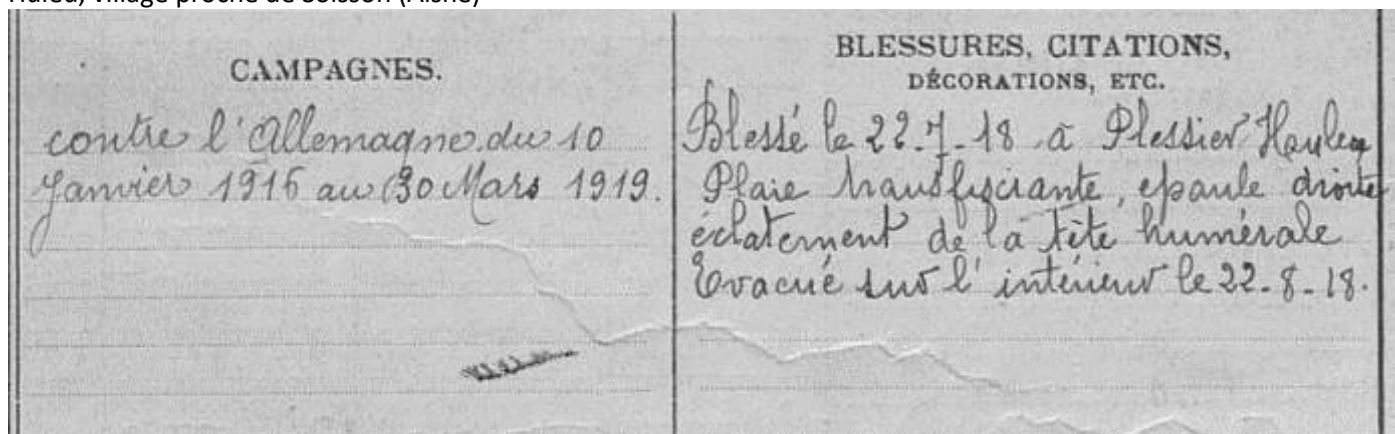 Huleu, village proche de Soisson (Aisne)
CAMPAGNES.
contre l'Allemagne du 10
Janvier 1916 au 30 Mars 1919.
BLESSURES, CITATIONS,
DÉCORATIONS, ETC.
Blessé le 22.7-18 à Plessier Hauleu
Plaie transfixiante, épaule droite
éclatement de la tête humérale
Evacué sur l'intérieur le 22-8-18.